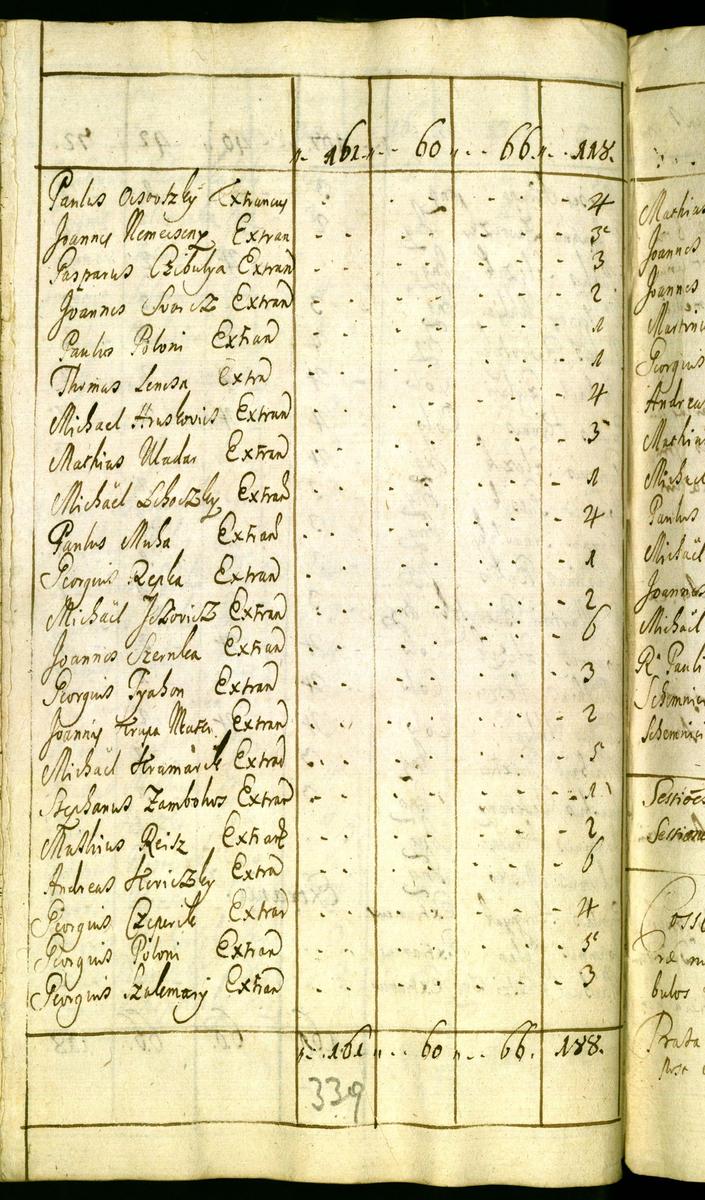 „. 161 „. . 60 „. . 66 „. . 118.
Paulus Osvotzky Extraneus 4
Joannes Nemecseny Extran 5
Gasparus Czibulya Extran 3
Joannes Svercz Extran 2
Paulus Poloni Extran 1
Thomas Lencsa Extra 1
Michael Hruskovics Extran 4
Mathias Uladar Extran 5
Michaël Lehoczky Extran 1
Paulus Muha Extran 4
Georgius Repka Extran 1
Michaël Iczovicz Extran 2
Joannes Szernka Extran 6
Georgius Tyahon Extran 3
Joannes Krupa Extran 2
Michaël Hramarcsik Extrad 5
Stephanus Zambolvos Extran 1
Mathius Reisz Extran 2
Andreas Hericzky Extra 6
Georgius Czeperik Extran 4
Georgius Poloni Extran 5
Georgius Szalemary Extran 3
„. 161 „. . 60 „. . 66. 188.
339
Mathias
Joannes
Joannes
Martinus
Georgius
Andreas
Mathias
Michael
Paulus
Michaël
Joannes
Michaël
R. Pauli
Schemnici
Schemnici
Sessiones
Sessiones
Prata